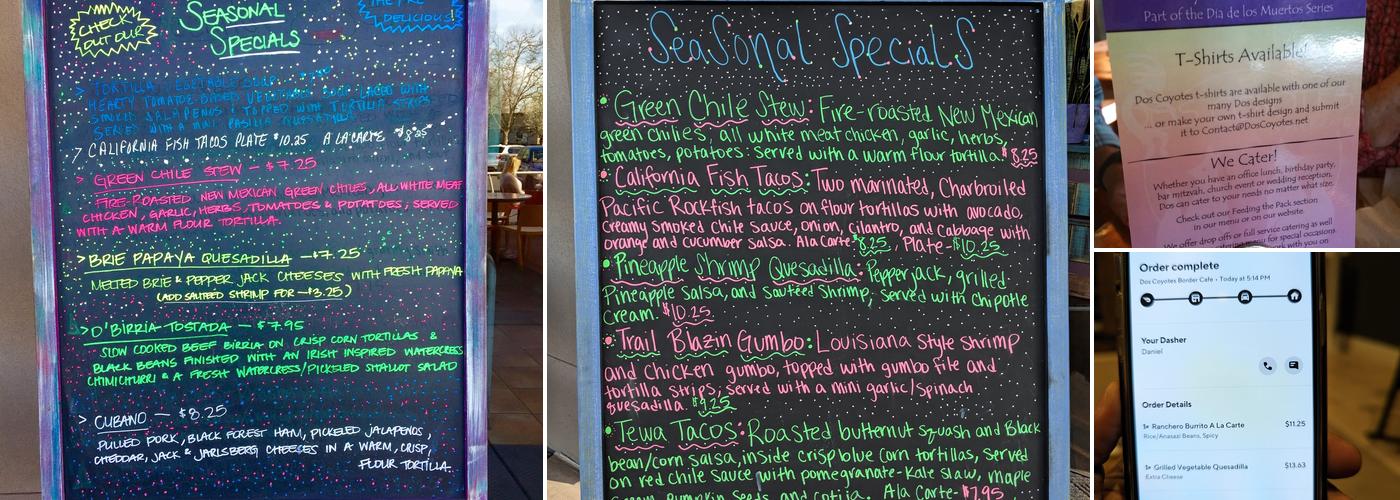 CHECK
OUT OUR
SEASONAL
SPECIALS
THEY'RE
DELICIOUS!
> TORTILLA VEGETABLE SOUP
HEARTY TOMATO BASED VEGETABLE SOUP LACED WITH
SMOKED JALAPENOS TOPPED WITH TORTILLA STRIPS
SERVED WITH A MINI PASILLA QUESADILLA
> CALIFORNIA FISH TACOS PLATE $10.25 A LA CARTE $8.25
> GREEN CHILE STEW — $7.25
FIRE-ROASTED NEW MEXICAN GREEN CHILES, ALL WHITE MEAT
CHICKEN, GARLIC, HERBS, TOMATOES & POTATOES; SERVED
WITH A WARM FLOUR TORTILLA.
> BRIE PAPAYA QUESADILLA — $7.25
MELTED BRIE & PEPPER JACK CHEESES WITH FRESH PAPAYA
(ADD SAUTEED SHRIMP FOR — $3.25)
> D'BIRRIA TOSTADA — $7.95
SLOW COOKED BEEF BIRRIA ON CRISP CORN TORTILLAS &
BLACK BEANS FINISHED WITH AN IRISH INSPIRED WATERCRESS
CHIMICHURRI & A FRESH WATERCRESS/PICKLED SHALLOT SALAD
> CUBANO — $8.25
PULLED PORK, BLACK FOREST HAM, PICKLED JALAPENOS,
CHEDDAR, JACK & JARLSBERG CHEESES IN A WARM, CRISP,
FLOUR TORTILLA.
Seasonal Specials
• Green Chile Stew: Fire-roasted New Mexican
green chilies, all white meat chicken, garlic, herbs,
tomatoes, potatoes: served with a warm flour tortilla. $8.25
• California Fish Tacos: Two marinated, Charbroiled
Pacific Rockfish tacos on flour tortillas with avocado,
creamy smoked chile sauce, onion, cilantro, and cabbage with
orange and cucumber salsa. Ala Carte $8.25, Plate- $10.25
• Pineapple Shrimp Quesadilla: Pepperjack, grilled
Pineapple salsa, and sauteed Shrimp; served with chipotle
cream. $10.25
• Trail Blazin Gumbo: Louisiana style shrimp
and chicken gumbo, topped with gumbo file and
tortilla strips; served with a mini garlic/spinach
quesadilla. $9.25
• Tewa Tacos: Roasted butternut squash and Black
bean/corn salsa, inside crisp blue corn tortillas, served
on red chile sauce with pomegranate-kale slaw, maple
cream, Pumpkin Seeds and cotija. Ala Carte- $7.95
Part of the Dia de los Muertos Series
T-Shirts Available!
Dos Coyotes t-shirts are available with one of our
many Dos designs
... or make your own t-shirt design and submit
it to Contact@DosCoyotes.net
We Cater!
Whether you have an office lunch, birthday party,
bar mitzvah, church event or wedding reception,
Dos can cater to your needs no matter what size.
Check out our Feeding the Pack section
in our menu or on our website.
We offer drop offs or full service catering as well
menu for special occasions.
with you on
Order complete
Dos Coyotes Border Cafe • Today at 5:14 PM
Your Dasher
Daniel
Order Details
1× Ranchero Burrito A La Carte $11.25
Rice/Anasazi Beans, Spicy
1× Grilled Vegetable Quesadilla $13.63
Extra Cheese